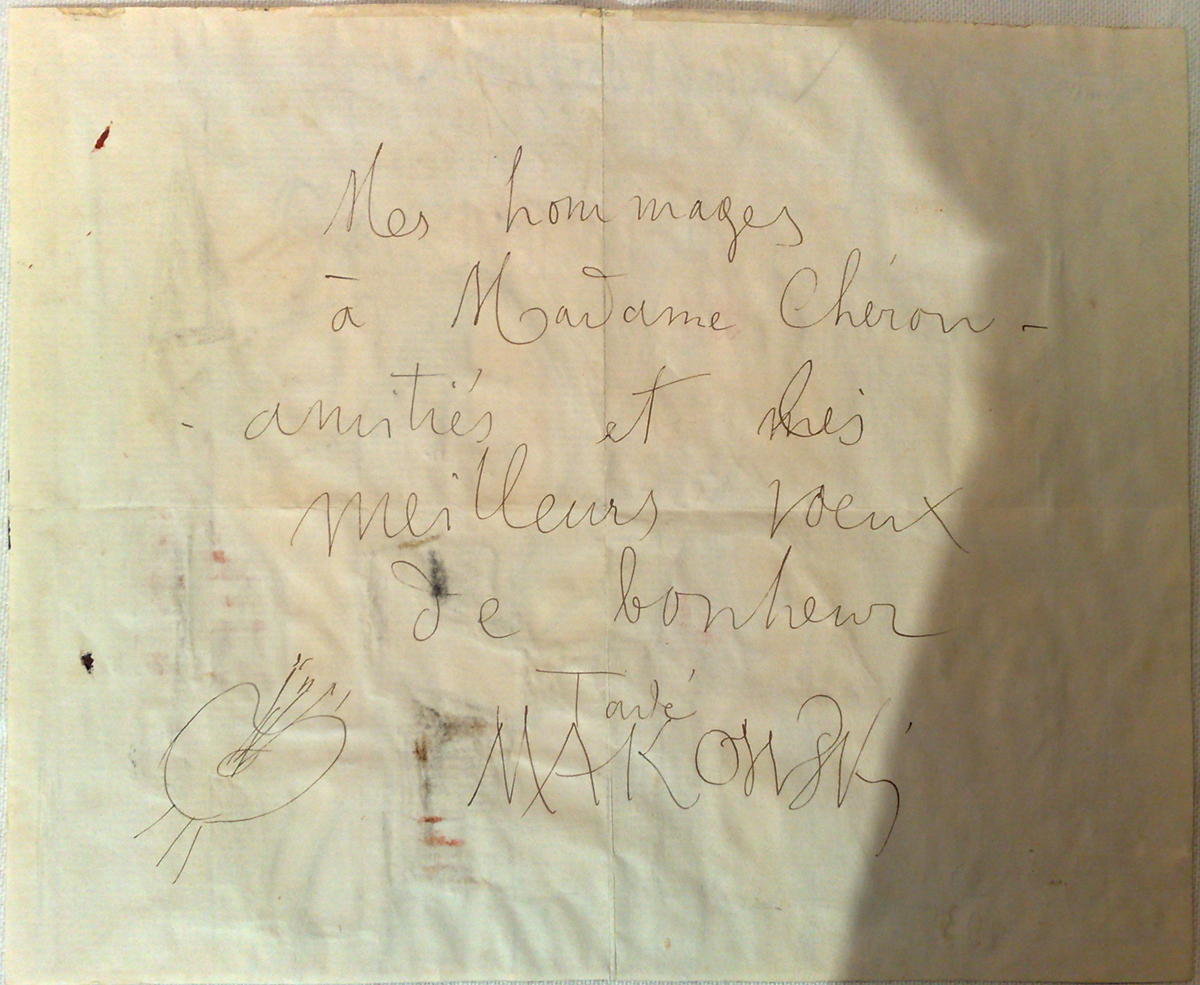 Mes hommages
à Madame Chéron -
- amitiés et mes
meilleurs voeux
de bonheur
Tadé
MAKOWSKi